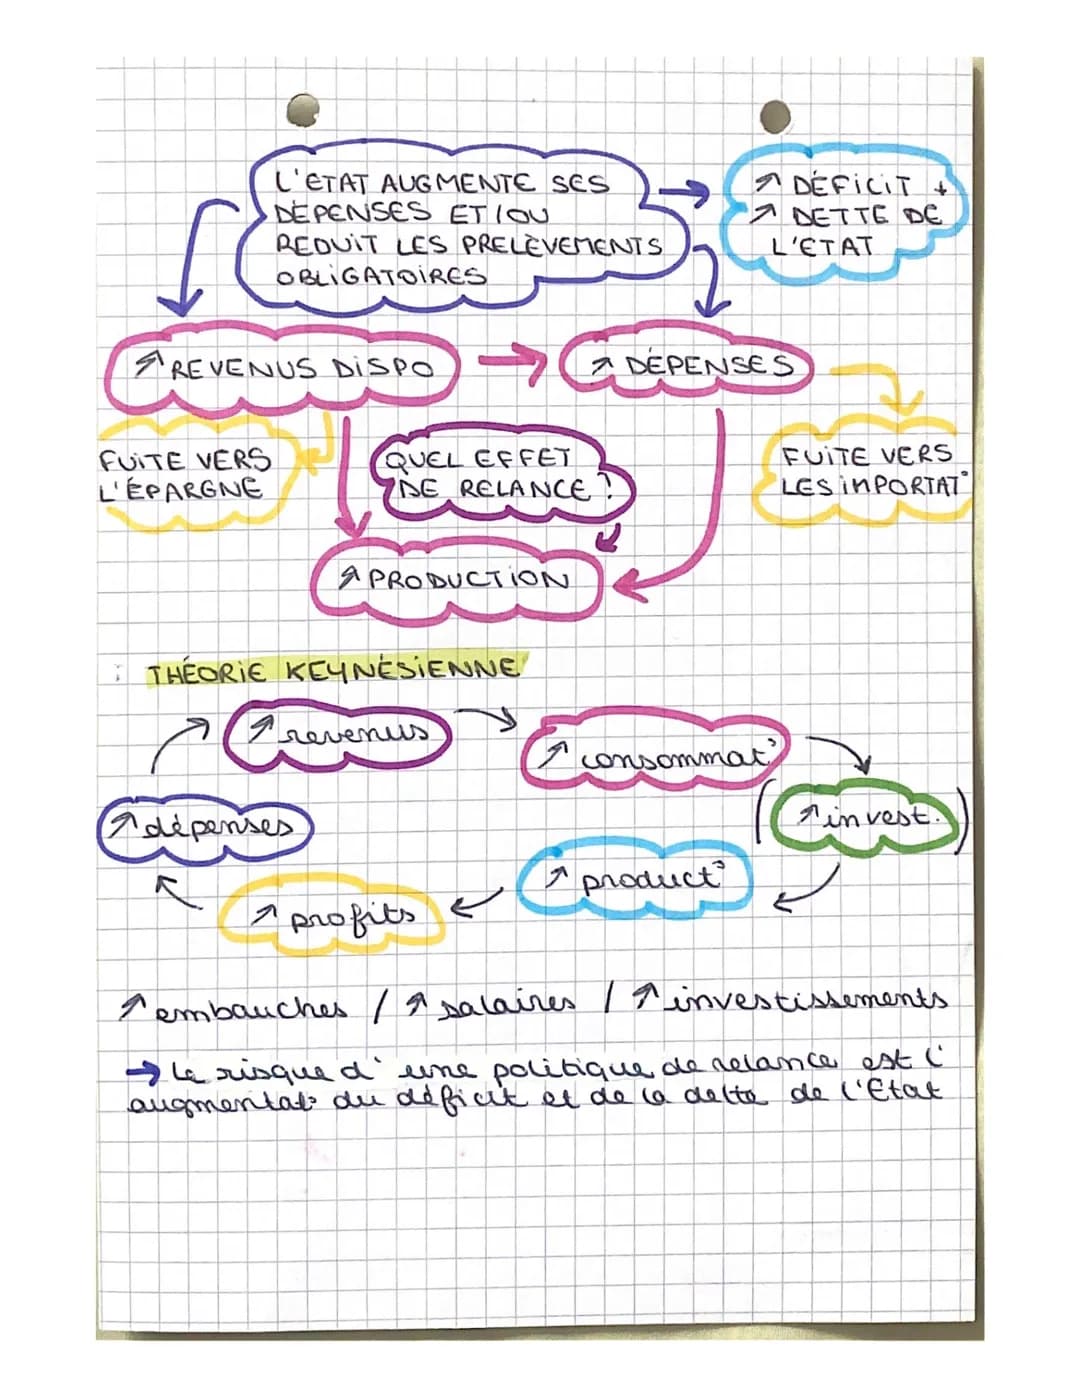 L'ETAT AUGMENTE SES
DÉPENSES ET/OU
REDUIT LES PRELÈVEMENTS
OBLIGATOIRES
↗ DÉFICIT +
↗ DETTE DE
L'ETAT
↗ REVENUS DISPO
↗ DÉPENSES
FUITE VERS
L'ÉPARGNE
QUEL EFFET
DE RELANCE ?
FUITE VERS
LES IMPORTAT°
↗ PRODUCTION
: THÉORIE KEYNÉSIENNE
↗ revenus
↗ consommat°
↗ dépenses
(↗ invest.)
↗ product°
↗ profits
↗ embauches / ↗ salaires / ↗ investissements
→ Le risque d'une politique de relance est l'
augmentat° du déficit et de la dette de l'Etat